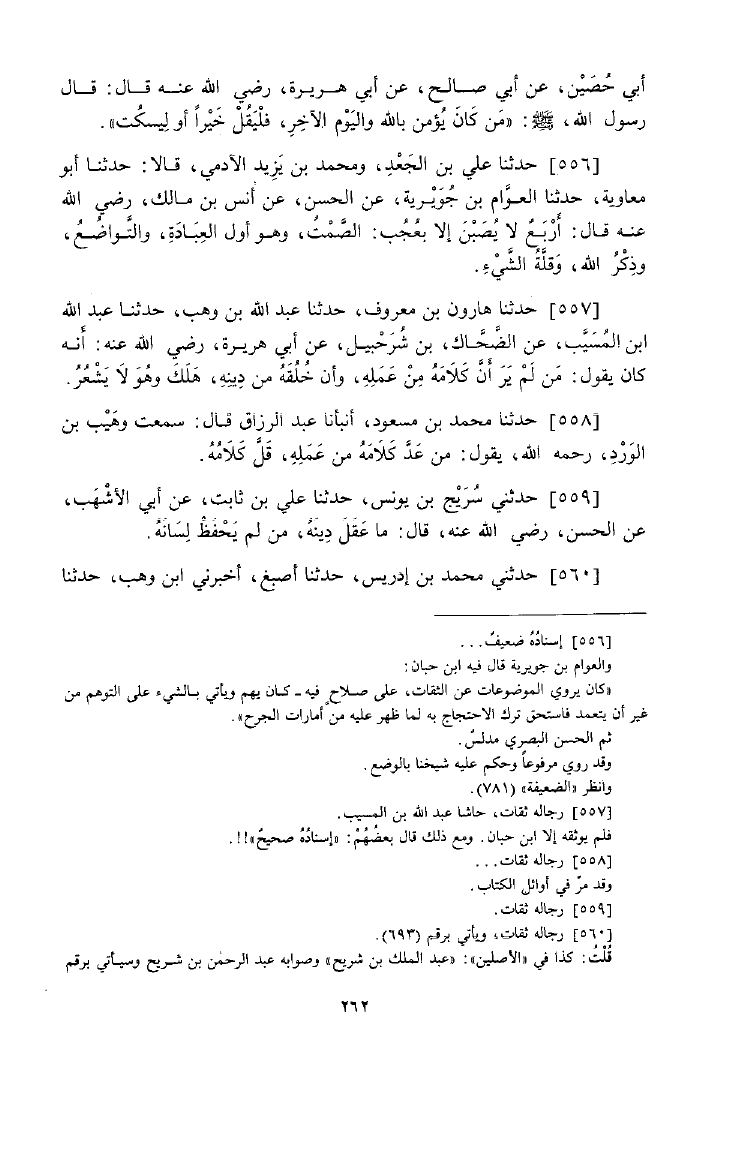 أبي حُصَيْن، عن أبي صالح، عن أبي هريرة، رضي الله عنه قال: قال
رسول الله، ﷺ: «مَن كَانَ يُؤمن بالله واليَوْم الآخِر، فلْيَقُلْ خَيْراً أو لِيسكُت».
[٥٥٦] حدثنا علي بن الجَعْد، ومحمد بن يَزِيد الآدمي، قالا: حدثنا أبو
معاوية، حدثنا العوَّام بن جُوَيْرية، عن الحسن، عن أنس بن مالك، رضي الله
عنه قال: أَرْبَعٌ لا يُصَبْنَ إلا بعُجُب: الصَّمْتُ، وهو أول العِبَادَةِ، والتَّواضُعُ،
وذِكْرُ الله، وَقلَّةُ الشَّيْءِ.
[٥٥٧] حدثنا هارون بن معروف، حدثنا عبد الله بن وهب، حدثنا عبد الله
ابن المُسَيَّب، عن الضَّحَّاك، بن شُرَحْبيل، عن أبي هريرة، رضي الله عنه: أَنه
كان يقول: مَن لَمْ يَر أَنَّ كَلَامَهُ مِنْ عَمَلِهِ، وأن خُلُقَهُ من دِينِهِ، هَلَكَ وهُوَ لَا يَشْعُرُ.
[٥٥٨] حدثنا محمد بن مسعود، أنبأنا عبد الرزاق قال: سمعت وهَيْب بن
الوَرْدِ، رحمه الله، يقول: من عَدَّ كَلَامَهُ من عَمَلِهِ، قَلَّ كَلَامُهُ.
[٥٥٩] حدثني سُرَيْج بن يونس، حدثنا علي بن ثابت، عن أبي الأشْهَب،
عن الحسن، رضي الله عنه، قال: ما عَقَلَ دِينَهُ، من لم يَحْفَظْ لِسَانَهُ.
[٥٦٠] حدثني محمد بن إدريس، حدثنا أصبغ، أخبرني ابن وهب، حدثنا
[٥٥٦] إسنادُهُ ضعيفٌ...
والعوام بن جويرية قال فيه ابن حبان:
«كان يروي الموضوعات عن الثقات، على صلاح فيه ـ كان يهم ويأتي بالشيء على التوهم من
غير أن يتعمد فاستحق ترك الاحتجاج به لما ظهر عليه من أمارات الجرح».
ثم الحسن البصري مدلسٌ.
وقد روي مرفوعاً وحكم عليه شيخنا بالوضع.
وانظر «الضعيفة» (٧٨١).
[٥٥٧] رجاله ثقات، حاشا عبد الله بن المسيب.
فلم يوثقه إلا ابن حبان. ومع ذلك قال بعضُهُمْ: «إسنادُهُ صحيحٌ»!!.
[٥٥٨] رجاله ثقات...
وقد مرّ في أوائل الكتاب.
[٥٥٩] رجاله ثقات.
[٥٦٠] رجاله ثقات، ويأتي برقم (٦٩٣).
قُلْتُ: كذا في «الأصلين»: «عبد الملك بن شريح» وصوابه عبد الرحمٰن بن شريح وسيأتي برقم
٢٦٢